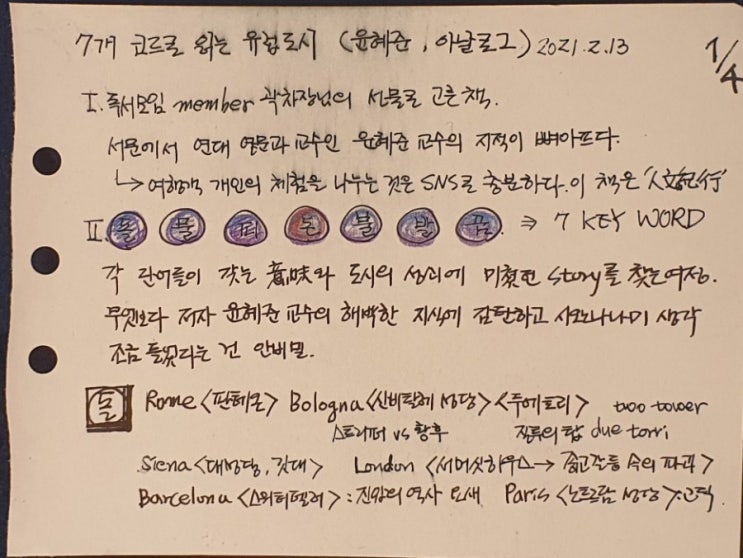 7개 코드로 읽는 유럽도시 (윤혜준, 아날로그) 2021.2.13
1/4
I. 독서모임 member 곽차장님의 선물로 고른 책.
서문에서 연대 영문과 교수인 윤혜준 교수의 지적이 뼈아프다.
↳ 여행객 개인의 체험을 나누는 것은 SNS로 충분하다. 이 책은 '人文紀行'
II. 돌 물 피 돈 불 발 꿈. ⇒ 7 KEY WORD
각 단어들이 갖는 意味와 도시의 성격에 미쳤던 story를 찾는 여정.
무엇보다 저자 윤혜준 교수의 해박한 지식에 감탄하고 시오노나나미 생각
조금 들었다는 건 안비밀.
돌 Rome <판테온> Bologna <산비탈레 성당> <두에토리> two tower
스트리퍼 vs 황후 짐투의 탑 due torri
Siena <대성당, 깃대> London <서머싯하우스 → 종교갈등 속의 파괴>
Barcelona <스위터델러> : 진압의 역사 요새 Paris <노트르담 성당> : 고딕